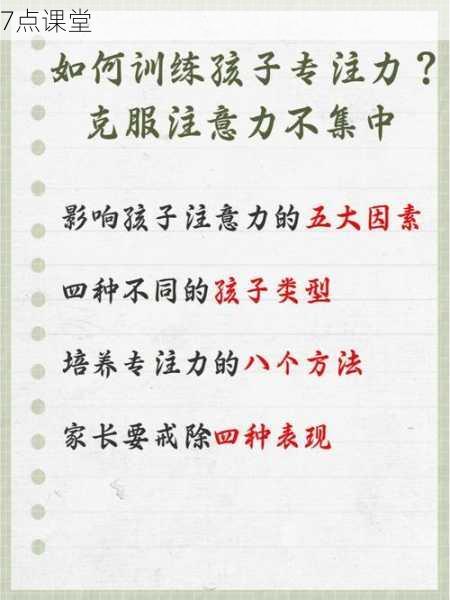 7点课堂
如何训练孩子专注力？
克服注意力不集中
影响孩子注意力的五大因素
四种不同的孩子类型
培养专注力的八个方法
家长要戒除四种表现